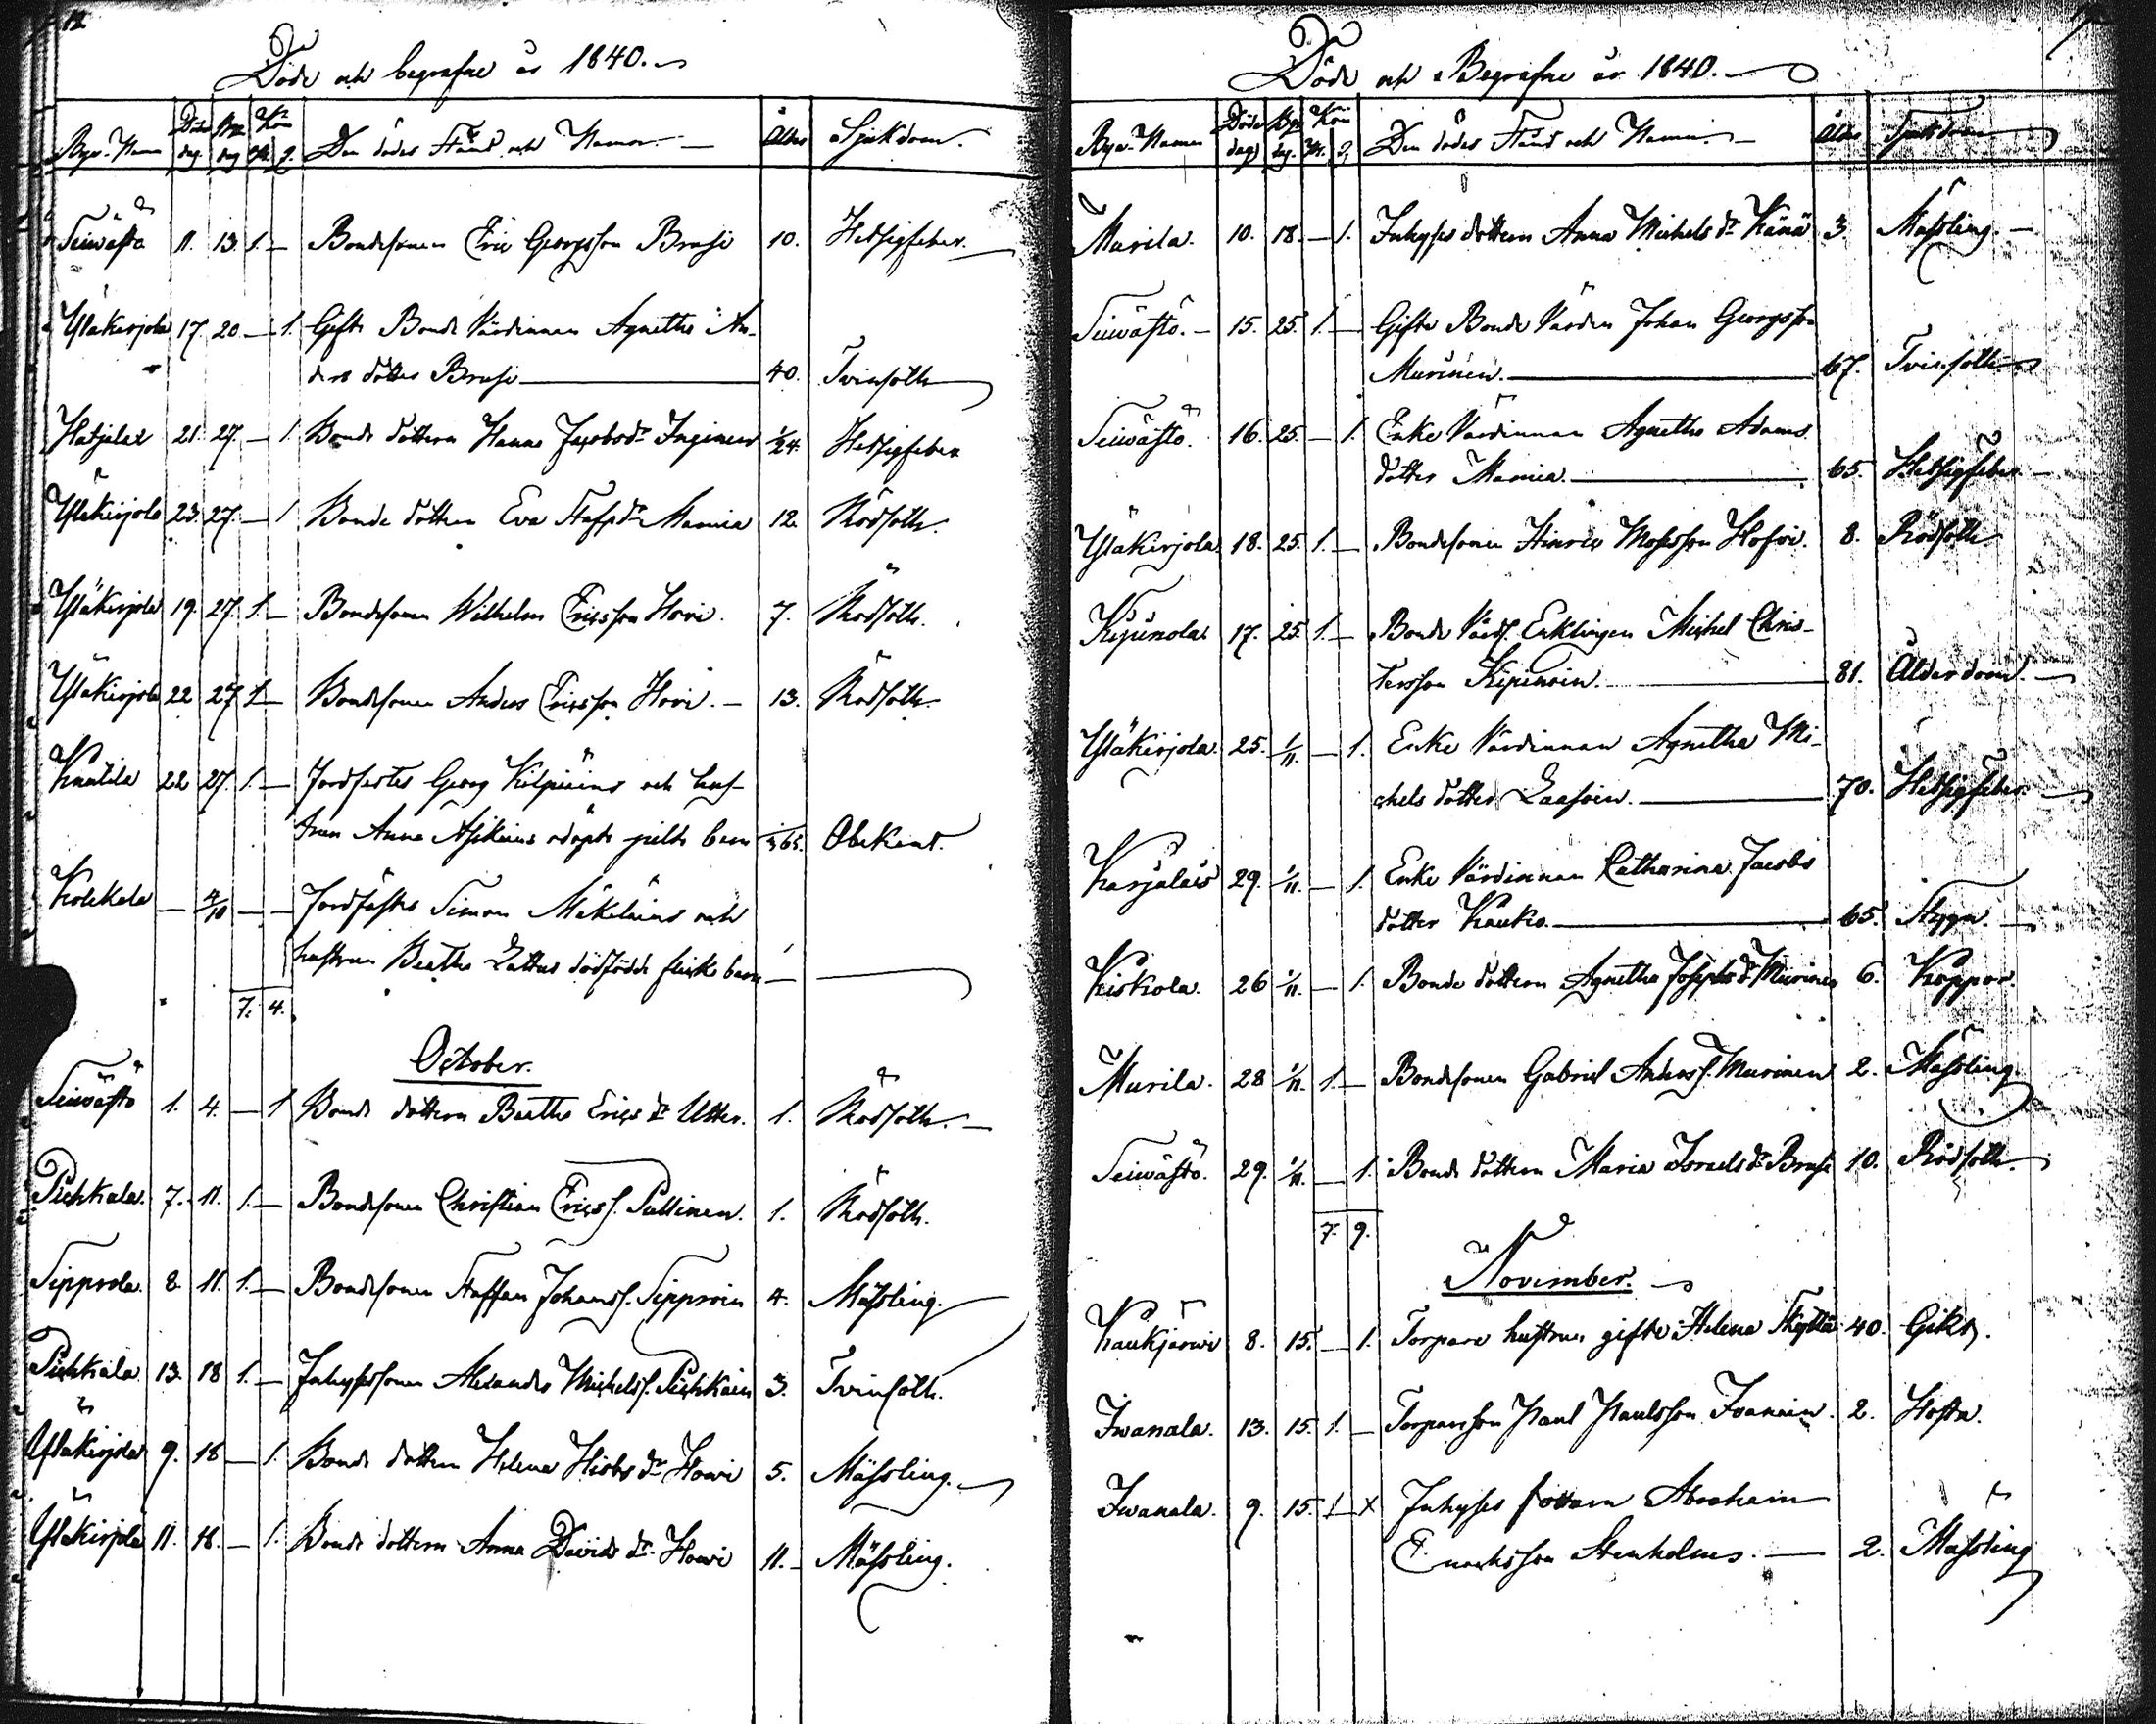 12.
Döde och begrafne år 1840.
Bys-Namn Döds dag Kön Den dödes Stånd och Namn Ålder Sjukdom.
Seiwästö 11. 13. 1. — Bondesonen Eric Georgsson Brusi 10. Hetsigfeber.
Yläkirjola 17. 20 — 1. Gifte Bonde Värdinnan Agnetha An-
ders dotter Brusi 40. Tvinsoth
Hatjalax 21. 27. — 1. Bonde dottren Hanna Jacobsdr Inginen 1/24. Hetsigfeber
Yläkirjola 23. 27. — 1 Bonde dottren Eva Staffsdr Mamia 12. Rödsoth.
Yläkirjola 19. 27. 1. — Bondesonen Wilhelm Ericsson Hovi. 7. Rödsoth.
Yläkirjola 22 27 1. — Bondesonen Anders Ericsson Hovi. — 13. Rödsoth.
Kuutila 22 27. 1. — Georg och hus-
trun Anna odöpte barn Obekant.
Kolekala — 4/10 — — Simon Mäkeläins och
hustrun Beatha Lattus dödfödde barn —
7. 4.
October.
Seiwästö 1. 4. — 1 Bonde dottren Beatha Erics dr Utter. 1. Rödsoth. —
Pihkala. 7. 11. 1. — Bondesonen Christian Erics s. Pullinen. 1. Rödsoth.
Sipprola. 8. 11. 1. — Bondesonen Staffan Johans s. Sipproin 4. Mässling.
Pihkala 13. 18 1. — Inhysessonen Alexander Michels s. Pihkain 3. Tvinsoth.
Yläkirjola 9. 18 — 1. Bonde dottren Helena dr Howi 5. Mässling.
Yläkirjola 11. 18. — 1. Bonde dottren Anna Davids dr Howi 11. Mässling.
Döde och Begrafne år 1840.
Bya-Namn Döds dag Beg. dag. Kön Den dödes Stånd och Namn. Ålder Sjukdom
Murila. 10. 18. — 1. Inhyses dottren Anna Michels dr Känä 3. Mässling. —
Seiwästö. — 15. 25. 1. — Gifte Bonde Värden Johan Georgsson
Murinen. 67. Tvinsoth
Seiwästö. 16. 25. — 1. Enke Värdinnan Agnetha Adams
dotter Mamia. 65. Hetsigfeber. —
Yläkirjola. 18. 25. 1. — Bondesonen Hinric Hofvi. 8. Rödsoth
Kipinola. 17. 25. 1. — Bonde Enklingen Michel Chris-
tersson Kipinoin. 81. Ålderdom. —
Yläkirjola. 25. 1/11. — 1. Enke Värdinnan Agnetha Mi-
chels dotter Laasoin. 70. Hetsigfeber.
Karjalais 29. 1/11. — 1. Enke Värdinnan Catharina Jacobs
dotter Kauko. 65. Stygn. —
Kiskola. 26 1/11. — 1. Bonde dottren Agnetha Josephs dr Murinen 6. Koppor.
Murila. 28 1/11. 1. — Bondesonen Gabriel Anders s. Murinen 2. Mässling.
Seiwästö. 29. 1/11. — 1. Bonde dottren Maria Israels dr Brusi 10. Rödsoth.
7. 9.
November.
Kaukjärwi 8. 15. — 1. Torpare hustrun gifte Helena Skyttä 40. Gikt.
Iwanala. 13. 15. 1. — Torparesson Paul Paulsson Ivanain. 2. Hosta.
Iwanala. 9. 15. 1 — x Inhyses Abraham
Enochsson Stenholms. — 2. Mässling